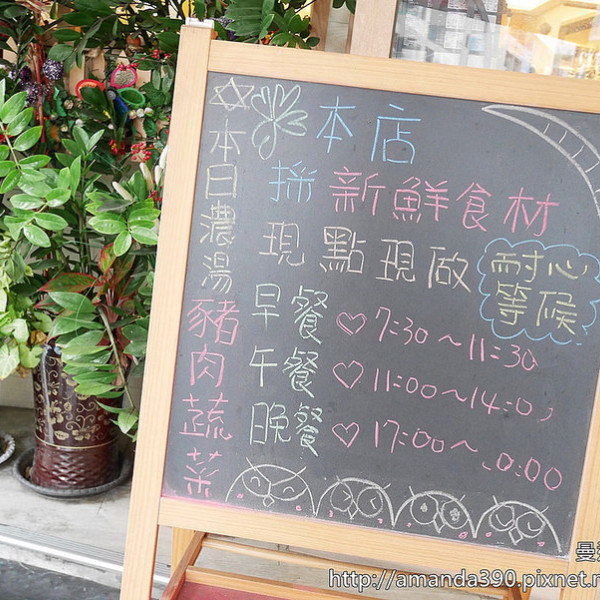 本日濃湯
豬肉蔬菜
本店
採新鮮食材
現點現做
耐心
等候
早餐♡7:30～11:30
午餐♡11:00～14:0
晚餐♡17:00～ 0:00
http://amanda390.pixnet.n